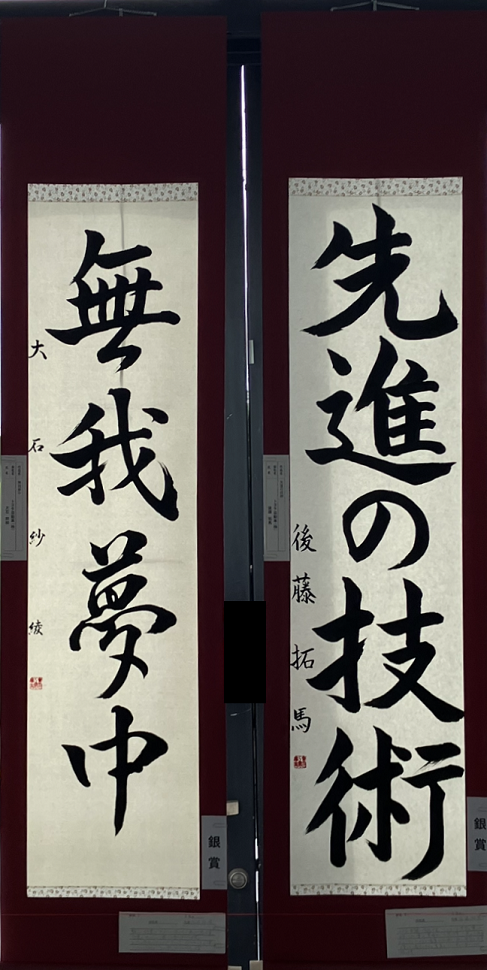 先進の技術
後藤拓馬
銀賞
無我夢中
大石紗綾
銀賞